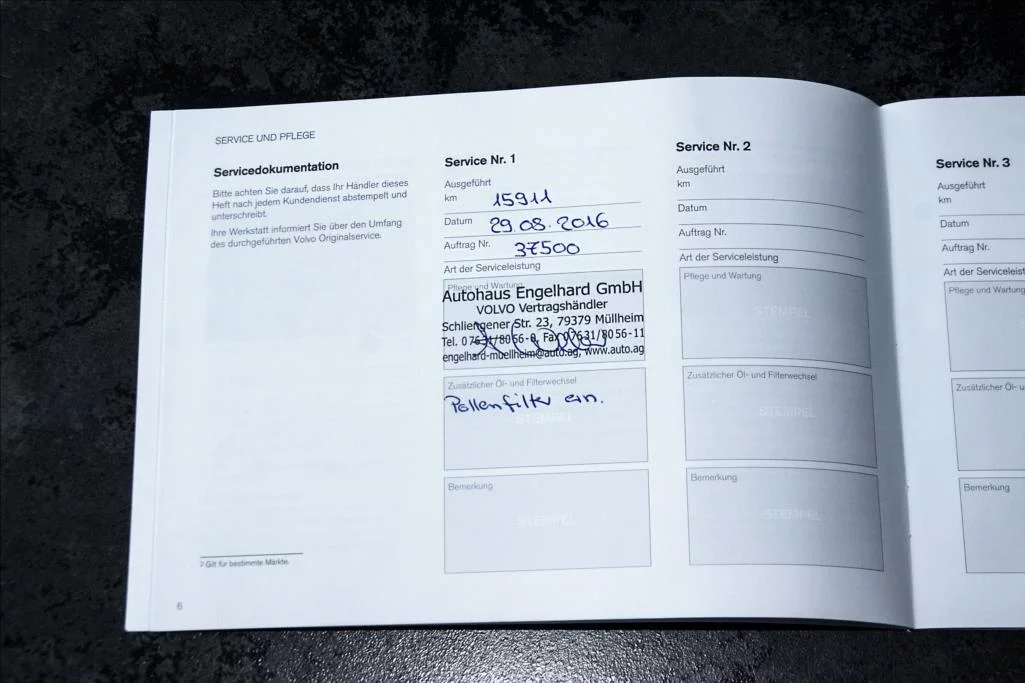 SERVICE UND PFLEGE
Servicedokumentation
Bitte achten Sie darauf, dass Ihr Händler dieses
Heft nach jedem Kundendienst abstempelt und
unterschreibt.
Ihre Werkstatt informiert Sie über den Umfang
des durchgeführten Volvo Originalservice.
Gilt für bestimmte Märkte.
6
Service Nr. 1
Ausgeführt
km 15911
Datum 29.08.2016
Auftrag Nr. 37500
Art der Serviceleistung
Pflege und Wartung
Autohaus Engelhard GmbH
VOLVO Vertragshändler
Schliengener Str. 23, 79379 Müllheim
Tel. 07631/8056-0, Fax 07631/8056-11
engelhard-muellheim@auto.ag, www.auto.ag
Zusätzlicher Öl- und Filterwechsel
Pollenfilter ern.
STEMPEL
Bemerkung
STEMPEL
Service Nr. 2
Ausgeführt
km
Datum
Auftrag Nr.
Art der Serviceleistung
Pflege und Wartung
STEMPEL
Zusätzlicher Öl- und Filterwechsel
STEMPEL
Bemerkung
STEMPEL
Service Nr. 3
Ausgeführt
km
Datum
Auftrag Nr.
Art der Serviceleist
Pflege und Wartung
Zusätzlicher Öl- u
Bemerkung